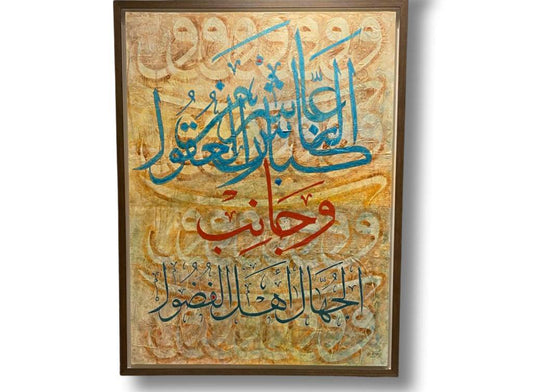 عاشر من الناس كبار العقول
وجانب
الجهال أهل الفضول